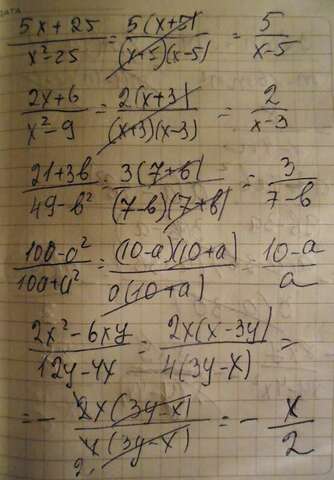 ДАТА
(5x+25)/(x²-25) = (5(x+5))/((x+5)(x-5)) = 5/(x-5)
(2x+6)/(x²-9) = (2(x+3))/((x+3)(x-3)) = 2/(x-3)
(21+3в)/(49-в²) = (3(7+в))/((7-в)(7+в)) = 3/(7-в)
(100-a²)/(10a+a²) = ((10-a)(10+a))/(a(10+a)) = (10-a)/a
(2x²-6xy)/(12y-4x) = (2x(x-3y))/(4(3y-x)) =
= - (2x(3y-x))/(4(3y-x)) = - x/2
2